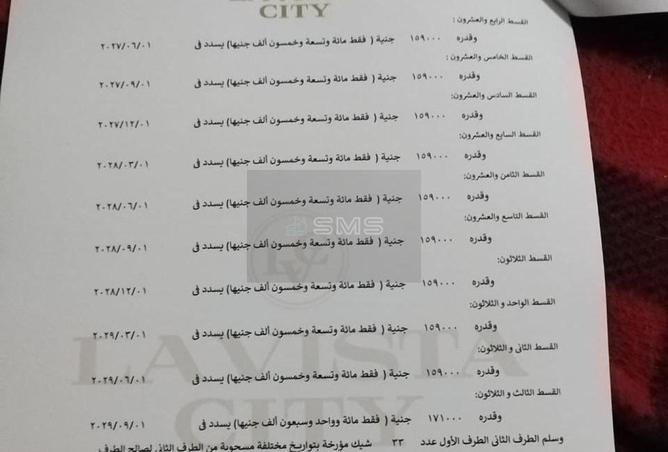 CITY
القسط الرابع والعشرون :
وقدره ١٥٩٠٠٠ جنية ( فقط مائة وتسعة وخمسون ألف جنيها) يسدد فى ٢٠٢٧/٠٦/٠١
القسط الخامس والعشرون :
وقدره ١٥٩٠٠٠ جنية ( فقط مائة وتسعة وخمسون ألف جنيها) يسدد فى ٢٠٢٧/٠٩/٠١
القسط السادس والعشرون:
وقدره ١٥٩٠٠٠ جنية ( فقط مائة وتسعة وخمسون ألف جنيها) يسدد فى ٢٠٢٧/١٢/٠١
القسط السابع والعشرون:
وقدره ١٥٩٠٠٠ جنية ( فقط مائة وتسعة وخمسون ألف جنيها) يسدد فى ٢٠٢٨/٠٣/٠١
القسط الثامن والعشرون:
وقدره ١٥٩٠٠٠ جنية ( فقط مائة وتسعة وخمسون ألف جنيها) يسدد فى ٢٠٢٨/٠٦/٠١
SMS
القسط التاسع والعشرون:
وقدره ١٥٩٠٠٠ جنية ( فقط مائة وتسعة وخمسون ألف جنيها) يسدد فى ٢٠٢٨/٠٩/٠١
القسط الثلاثون:
وقدره ١٥٩٠٠٠ جنية ( فقط مائة وتسعة وخمسون ألف جنيها) يسدد فى ٢٠٢٨/١٢/٠١
القسط الواحد و الثلاثون:
وقدره ١٥٩٠٠٠ جنية ( فقط مائة وتسعة وخمسون ألف جنيها) يسدد فى ٢٠٢٩/٠٣/٠١
LAVISTA
القسط الثانى و الثلاثون:
وقدره ١٥٩٠٠٠ جنية ( فقط مائة وتسعة وخمسون ألف جنيها) يسدد فى ٢٠٢٩/٠٦/٠١
القسط الثالث و الثلاثون:
CITY
وقدره ١٧١٠٠٠ جنية ( فقط مائة وواحد وسبعون ألف جنيها) يسدد فى ٢٠٢٩/٠٩/٠١
وسلم الطرف الثانى الطرف الأول عدد ٣٣ شيك مؤرخة بتواريخ مختلفة مسحوبة من الطرف الثانى لصالح الطرف